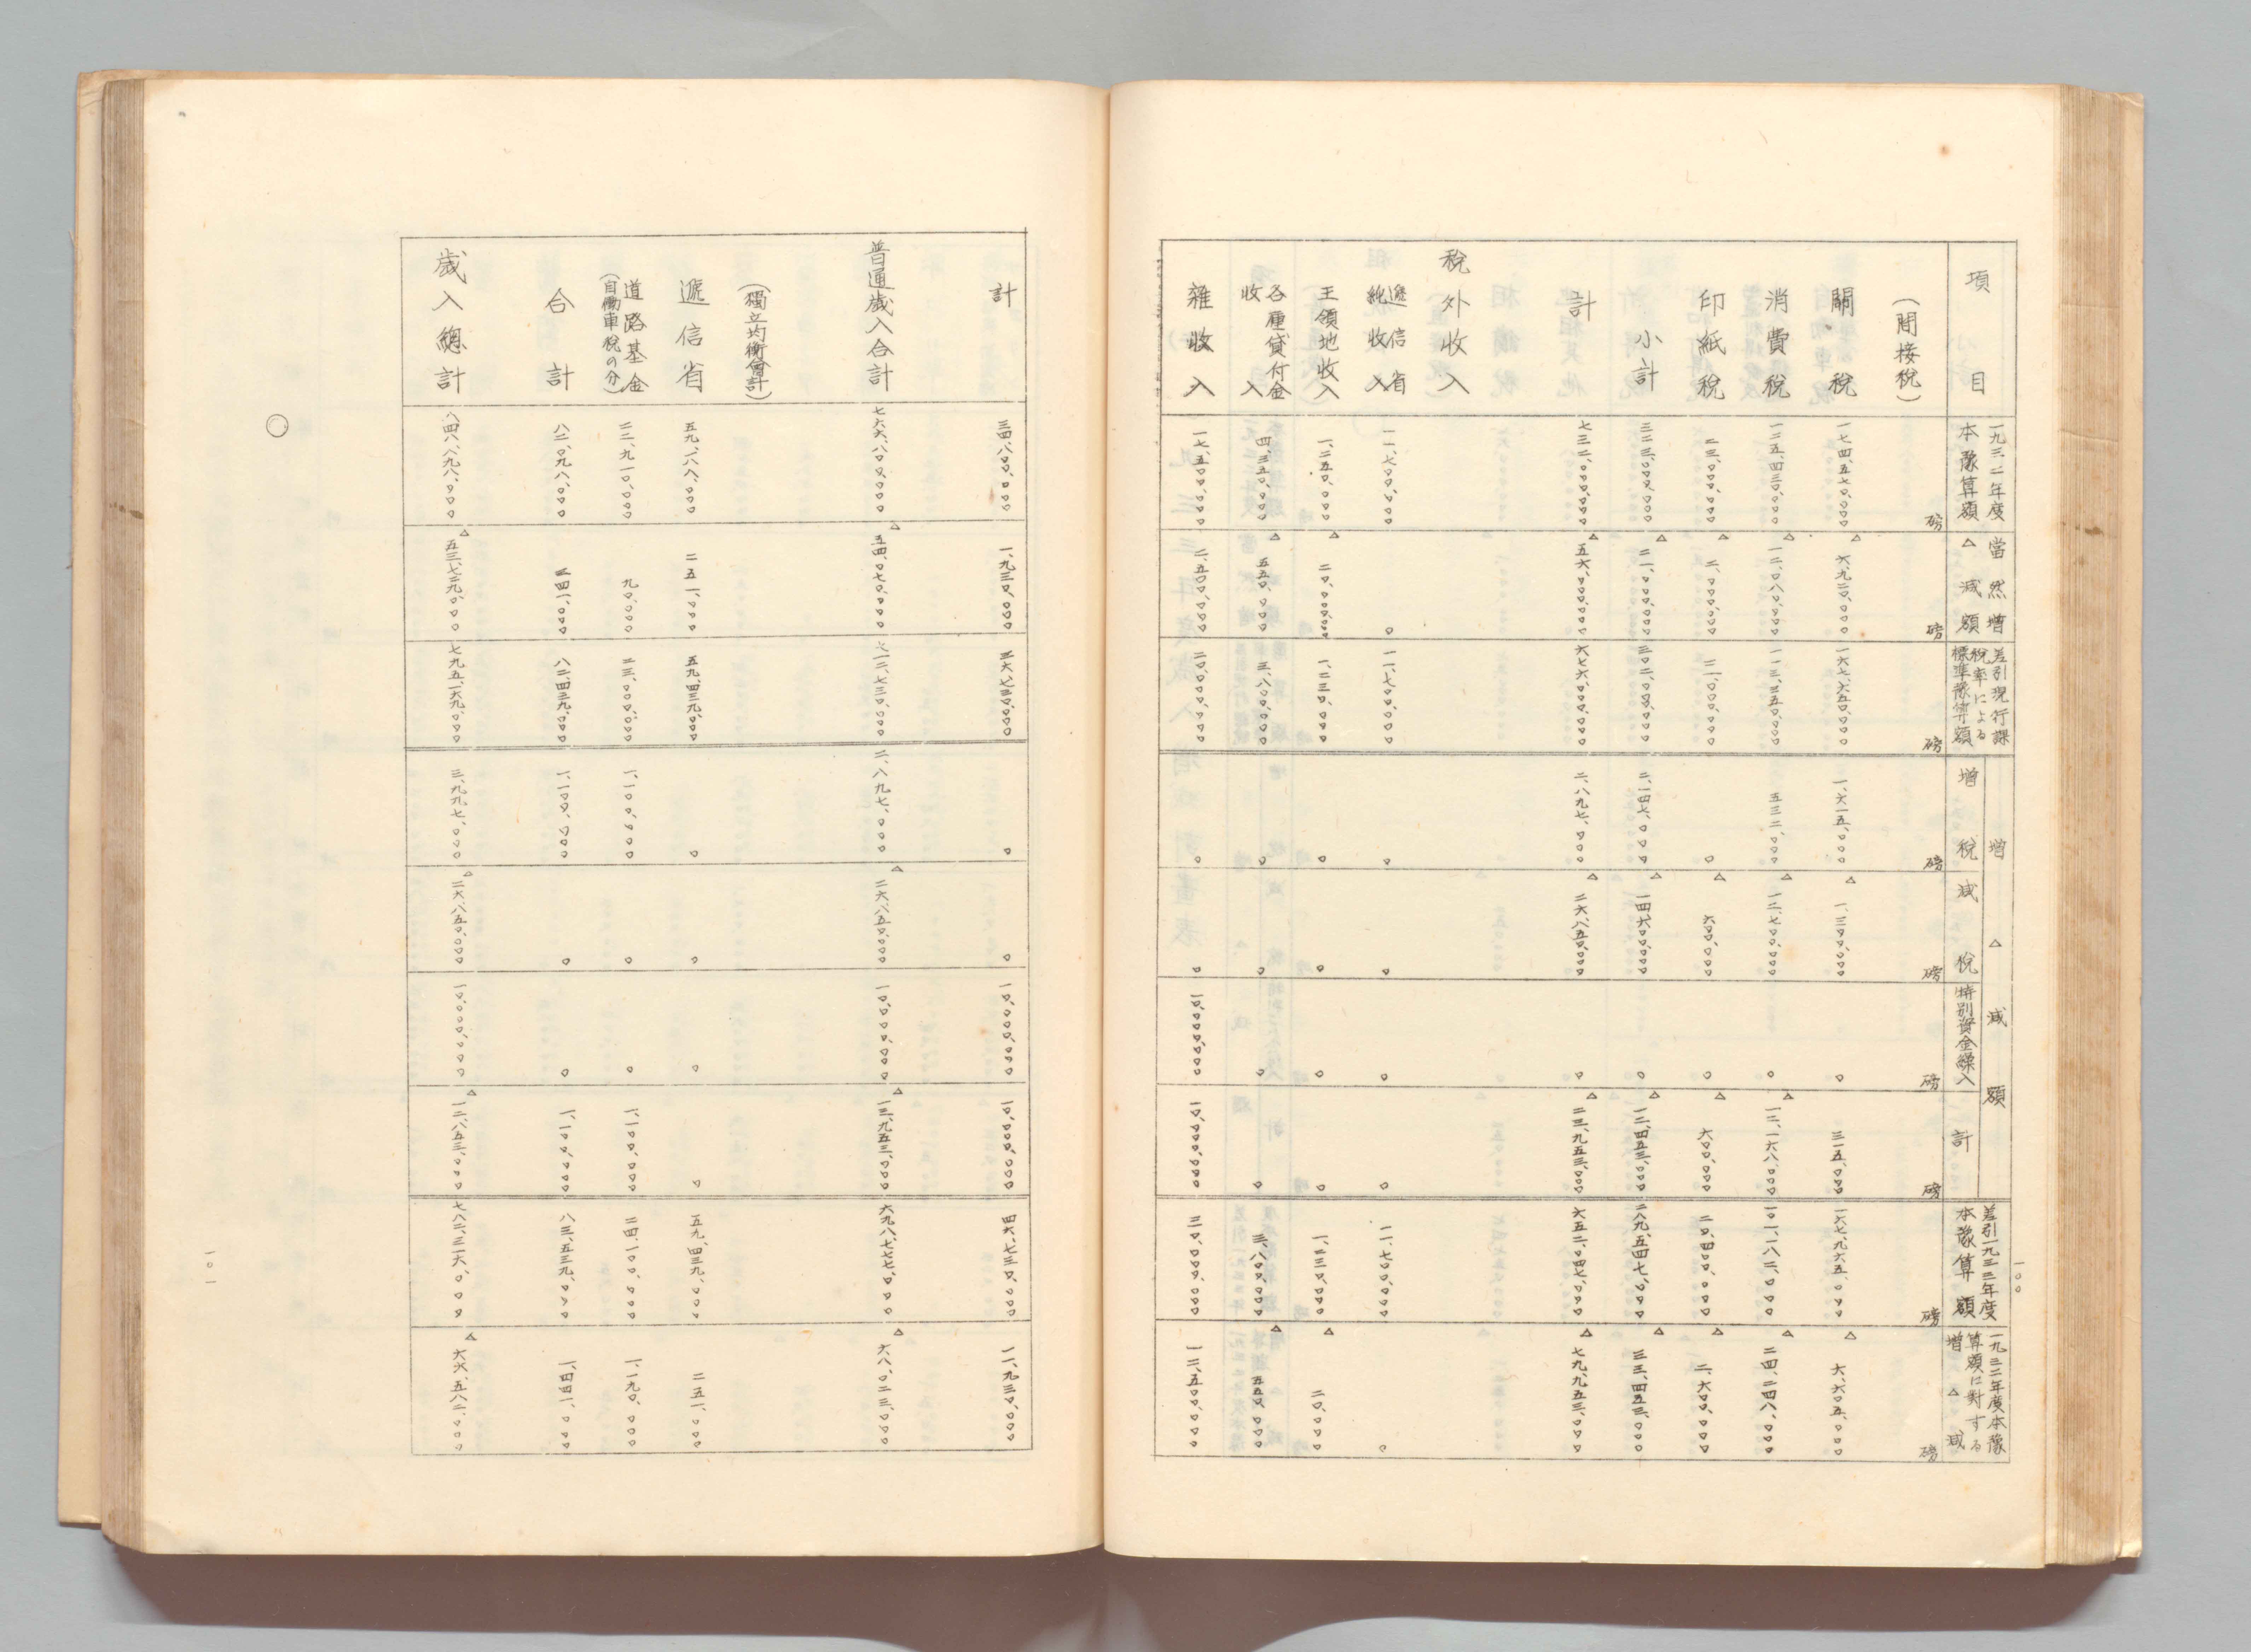 一〇〇
項目
一九三二年度本豫算額
當然增△減額
差引現行課稅率による標準豫算額
增△減額
增稅
減稅
特別資金繰入
計
差引一九三三年度本豫算額
一九三二年度本豫算額に對する增△減
(間接稅) 磅 磅 磅 磅 磅 磅 磅 磅 磅
關稅 一七四、五七〇、〇〇〇 △六、九二〇、〇〇〇 一六七、六五〇、〇〇〇 一、六一五、〇〇〇 △一、三〇〇、〇〇〇 〇 三一五、〇〇〇 一六七、九六五、〇〇〇 △六、六〇五、〇〇〇
消費稅 一二五、四三〇、〇〇〇 △一二、〇八〇、〇〇〇 一一三、三五〇、〇〇〇 五三二、〇〇〇 △一二、七〇〇、〇〇〇 〇 △一二、一六八、〇〇〇 一〇一、一八二、〇〇〇 △二四、二四八、〇〇〇
印紙稅 二三、〇〇〇、〇〇〇 △二、〇〇〇、〇〇〇 二一、〇〇〇、〇〇〇 〇 △六〇〇、〇〇〇 〇 △六〇〇、〇〇〇 二〇、四〇〇、〇〇〇 △二、六〇〇、〇〇〇
小計 三二三、〇〇〇、〇〇〇 △二一、〇〇〇、〇〇〇 三〇二、〇〇〇、〇〇〇 二、一四七、〇〇〇 △一四、六〇〇、〇〇〇 〇 △一二、四五三、〇〇〇 二八九、五四七、〇〇〇 △三三、四五三、〇〇〇
計 七三二、〇〇〇、〇〇〇 △五六、〇〇〇、〇〇〇 六七六、〇〇〇、〇〇〇 二、八九七、〇〇〇 △二六、八五〇、〇〇〇 〇 △二三、九五三、〇〇〇 六五二、〇四七、〇〇〇 △七九、九五三、〇〇〇
稅外收入
遞信省純收入 一一、七〇〇、〇〇〇 〇 一一、七〇〇、〇〇〇 〇 〇 〇 〇 一一、七〇〇、〇〇〇 〇
王領地收入 一、二五〇、〇〇〇 △二〇、〇〇〇 一、二三〇、〇〇〇 〇 〇 〇 〇 一、二三〇、〇〇〇 △二〇、〇〇〇
各種貸付金收入 四、三五〇、〇〇〇 △五五〇、〇〇〇 三、八〇〇、〇〇〇 〇 〇 〇 〇 三、八〇〇、〇〇〇 △五五〇、〇〇〇
雜收入 一七、五〇〇、〇〇〇 二、五〇〇、〇〇〇 二〇、〇〇〇、〇〇〇 〇 〇 一〇、〇〇〇、〇〇〇 一〇、〇〇〇、〇〇〇 三〇、〇〇〇、〇〇〇 一二、五〇〇、〇〇〇
計 三四、八〇〇、〇〇〇 一、九三〇、〇〇〇 三六、七三〇、〇〇〇 〇 〇 一〇、〇〇〇、〇〇〇 一〇、〇〇〇、〇〇〇 四六、七三〇、〇〇〇 一一、九三〇、〇〇〇
普通歲入合計 七六六、八〇〇、〇〇〇 △五四、〇七〇、〇〇〇 七一二、七三〇、〇〇〇 二、八九七、〇〇〇 △二六、八五〇、〇〇〇 一〇、〇〇〇、〇〇〇 △一三、九五三、〇〇〇 六九八、七七七、〇〇〇 △六八、〇二三、〇〇〇
(獨立均衡會計)
遞信省 五九、一八八、〇〇〇 二五一、〇〇〇 五九、四三九、〇〇〇 〇 〇 〇 〇 五九、四三九、〇〇〇 二五一、〇〇〇
道路基金(自働車稅の分) 二二、九一〇、〇〇〇 九〇、〇〇〇 二三、〇〇〇、〇〇〇 一、一〇〇、〇〇〇 〇 〇 一、一〇〇、〇〇〇 二四、一〇〇、〇〇〇 一、一九〇、〇〇〇
合計 八二、〇九八、〇〇〇 三四一、〇〇〇 八二、四三九、〇〇〇 一、一〇〇、〇〇〇 〇 〇 一、一〇〇、〇〇〇 八三、五三九、〇〇〇 一、四四一、〇〇〇
歲入總計 八四八、八九八、〇〇〇 △五三、七二九、〇〇〇 七九五、一六九、〇〇〇 三、九九七、〇〇〇 △二六、八五〇、〇〇〇 一〇、〇〇〇、〇〇〇 △一二、八五三、〇〇〇 七八二、三一六、〇〇〇 △六六、五八二、〇〇〇
一〇一